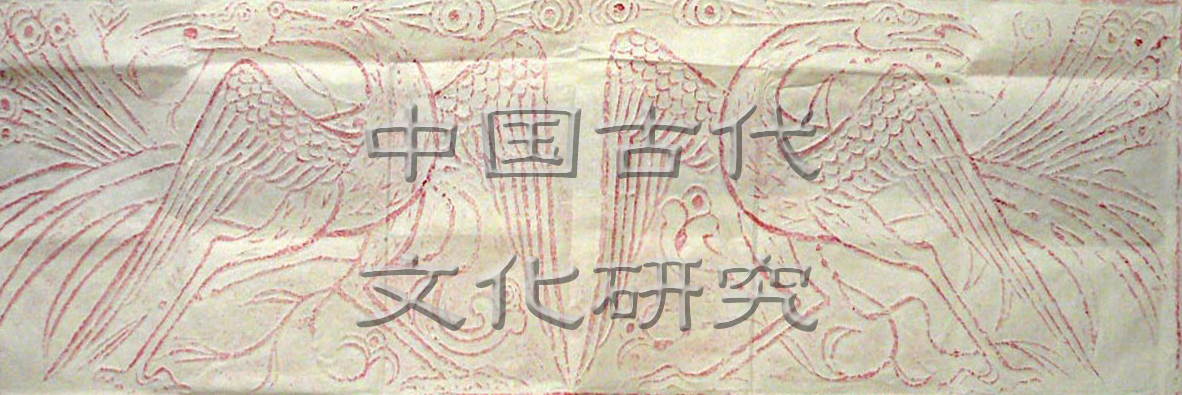 中国古代
文化研究